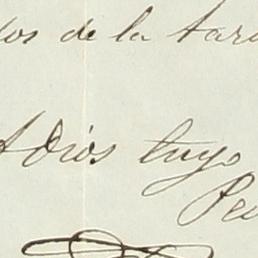 dos de la tard
Adios tuyo
Ped